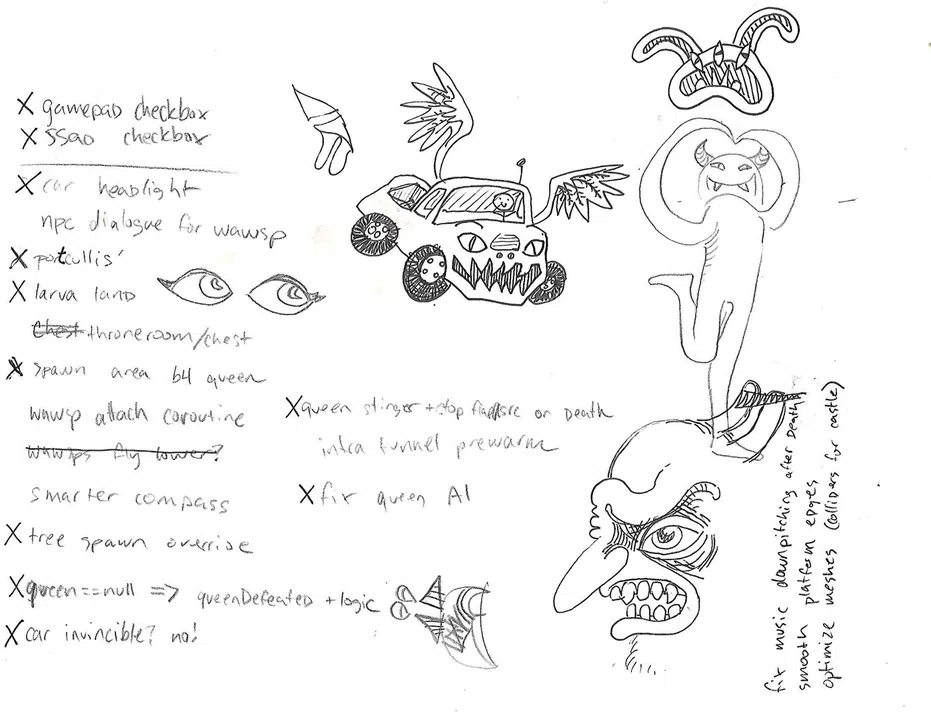 X gamepad checkbox
X SSAO checkbox
X car headlight
npc dialogue for wawsp
X portcullis'
X larva land
Chest throneroom/chest
X spawn area b4 queen
wawsp attach coroutine
wawsps fly lower?
smarter compass
X tree spawn override
X queen==null => queenDefeated + logic
X car invincible? no!
X queen stinger + stop flapsrc on Death
intra tunnel prewarm
X fix queen AI
fix music downpitching after Death
smooth platform edges
optimize meshes (colliders for castle)